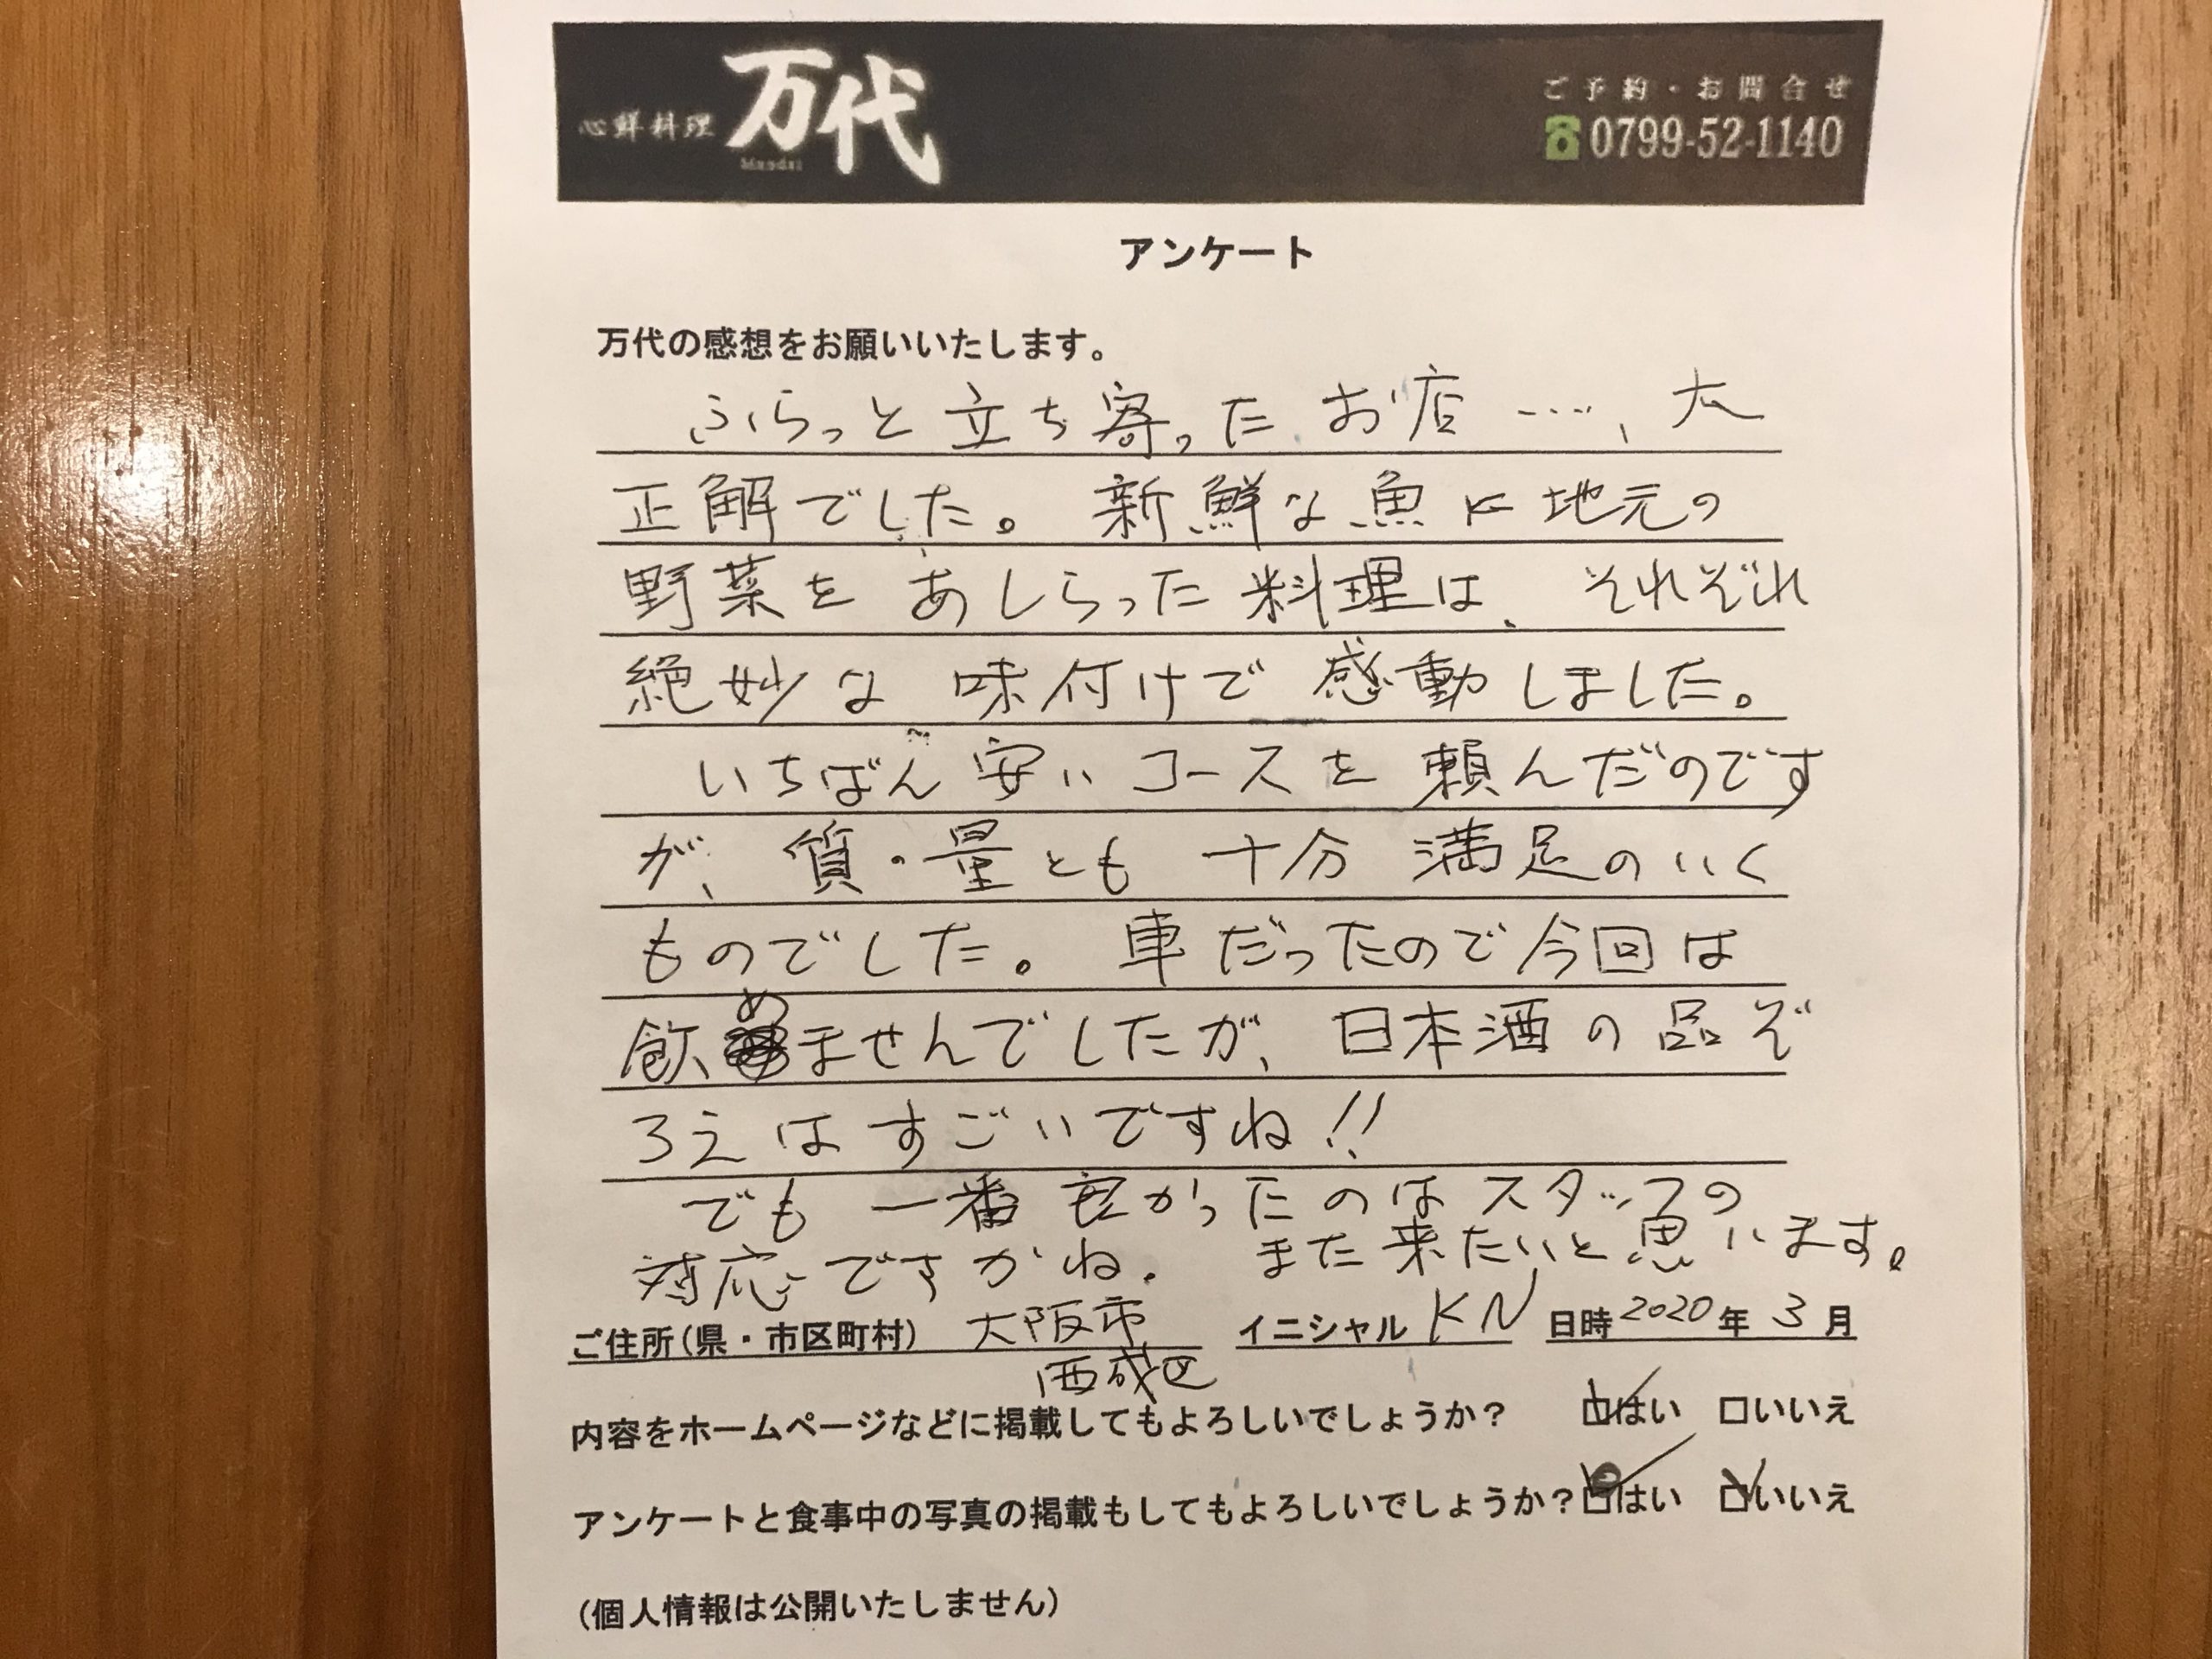 心鮮料理 万代
Mandai
ご予約・お問合せ
0799-52-1140
アンケート
万代の感想をお願いいたします。
ふらっと立ち寄ったお店…、大
正解でした。新鮮な魚に地元の
野菜をあしらった料理は、それぞれ
絶妙な味付けで感動しました。
いちばん安いコースを頼んだのです
が、質・量とも十分満足のいく
ものでした。車だったので今回は
飲めませんでしたが、日本酒の品ぞ
ろえはすごいですね!!
でも一番良かったのはスタッフの
対応ですかね。また来たいと思います。
ご住所(県・市区町村) 大阪市 イニシャル KN 日時 2020年 3月
西成区
内容をホームページなどに掲載してもよろしいでしょうか? □はい □いいえ
アンケートと食事中の写真の掲載もしてもよろしいでしょうか? □はい □いいえ
(個人情報は公開いたしません)